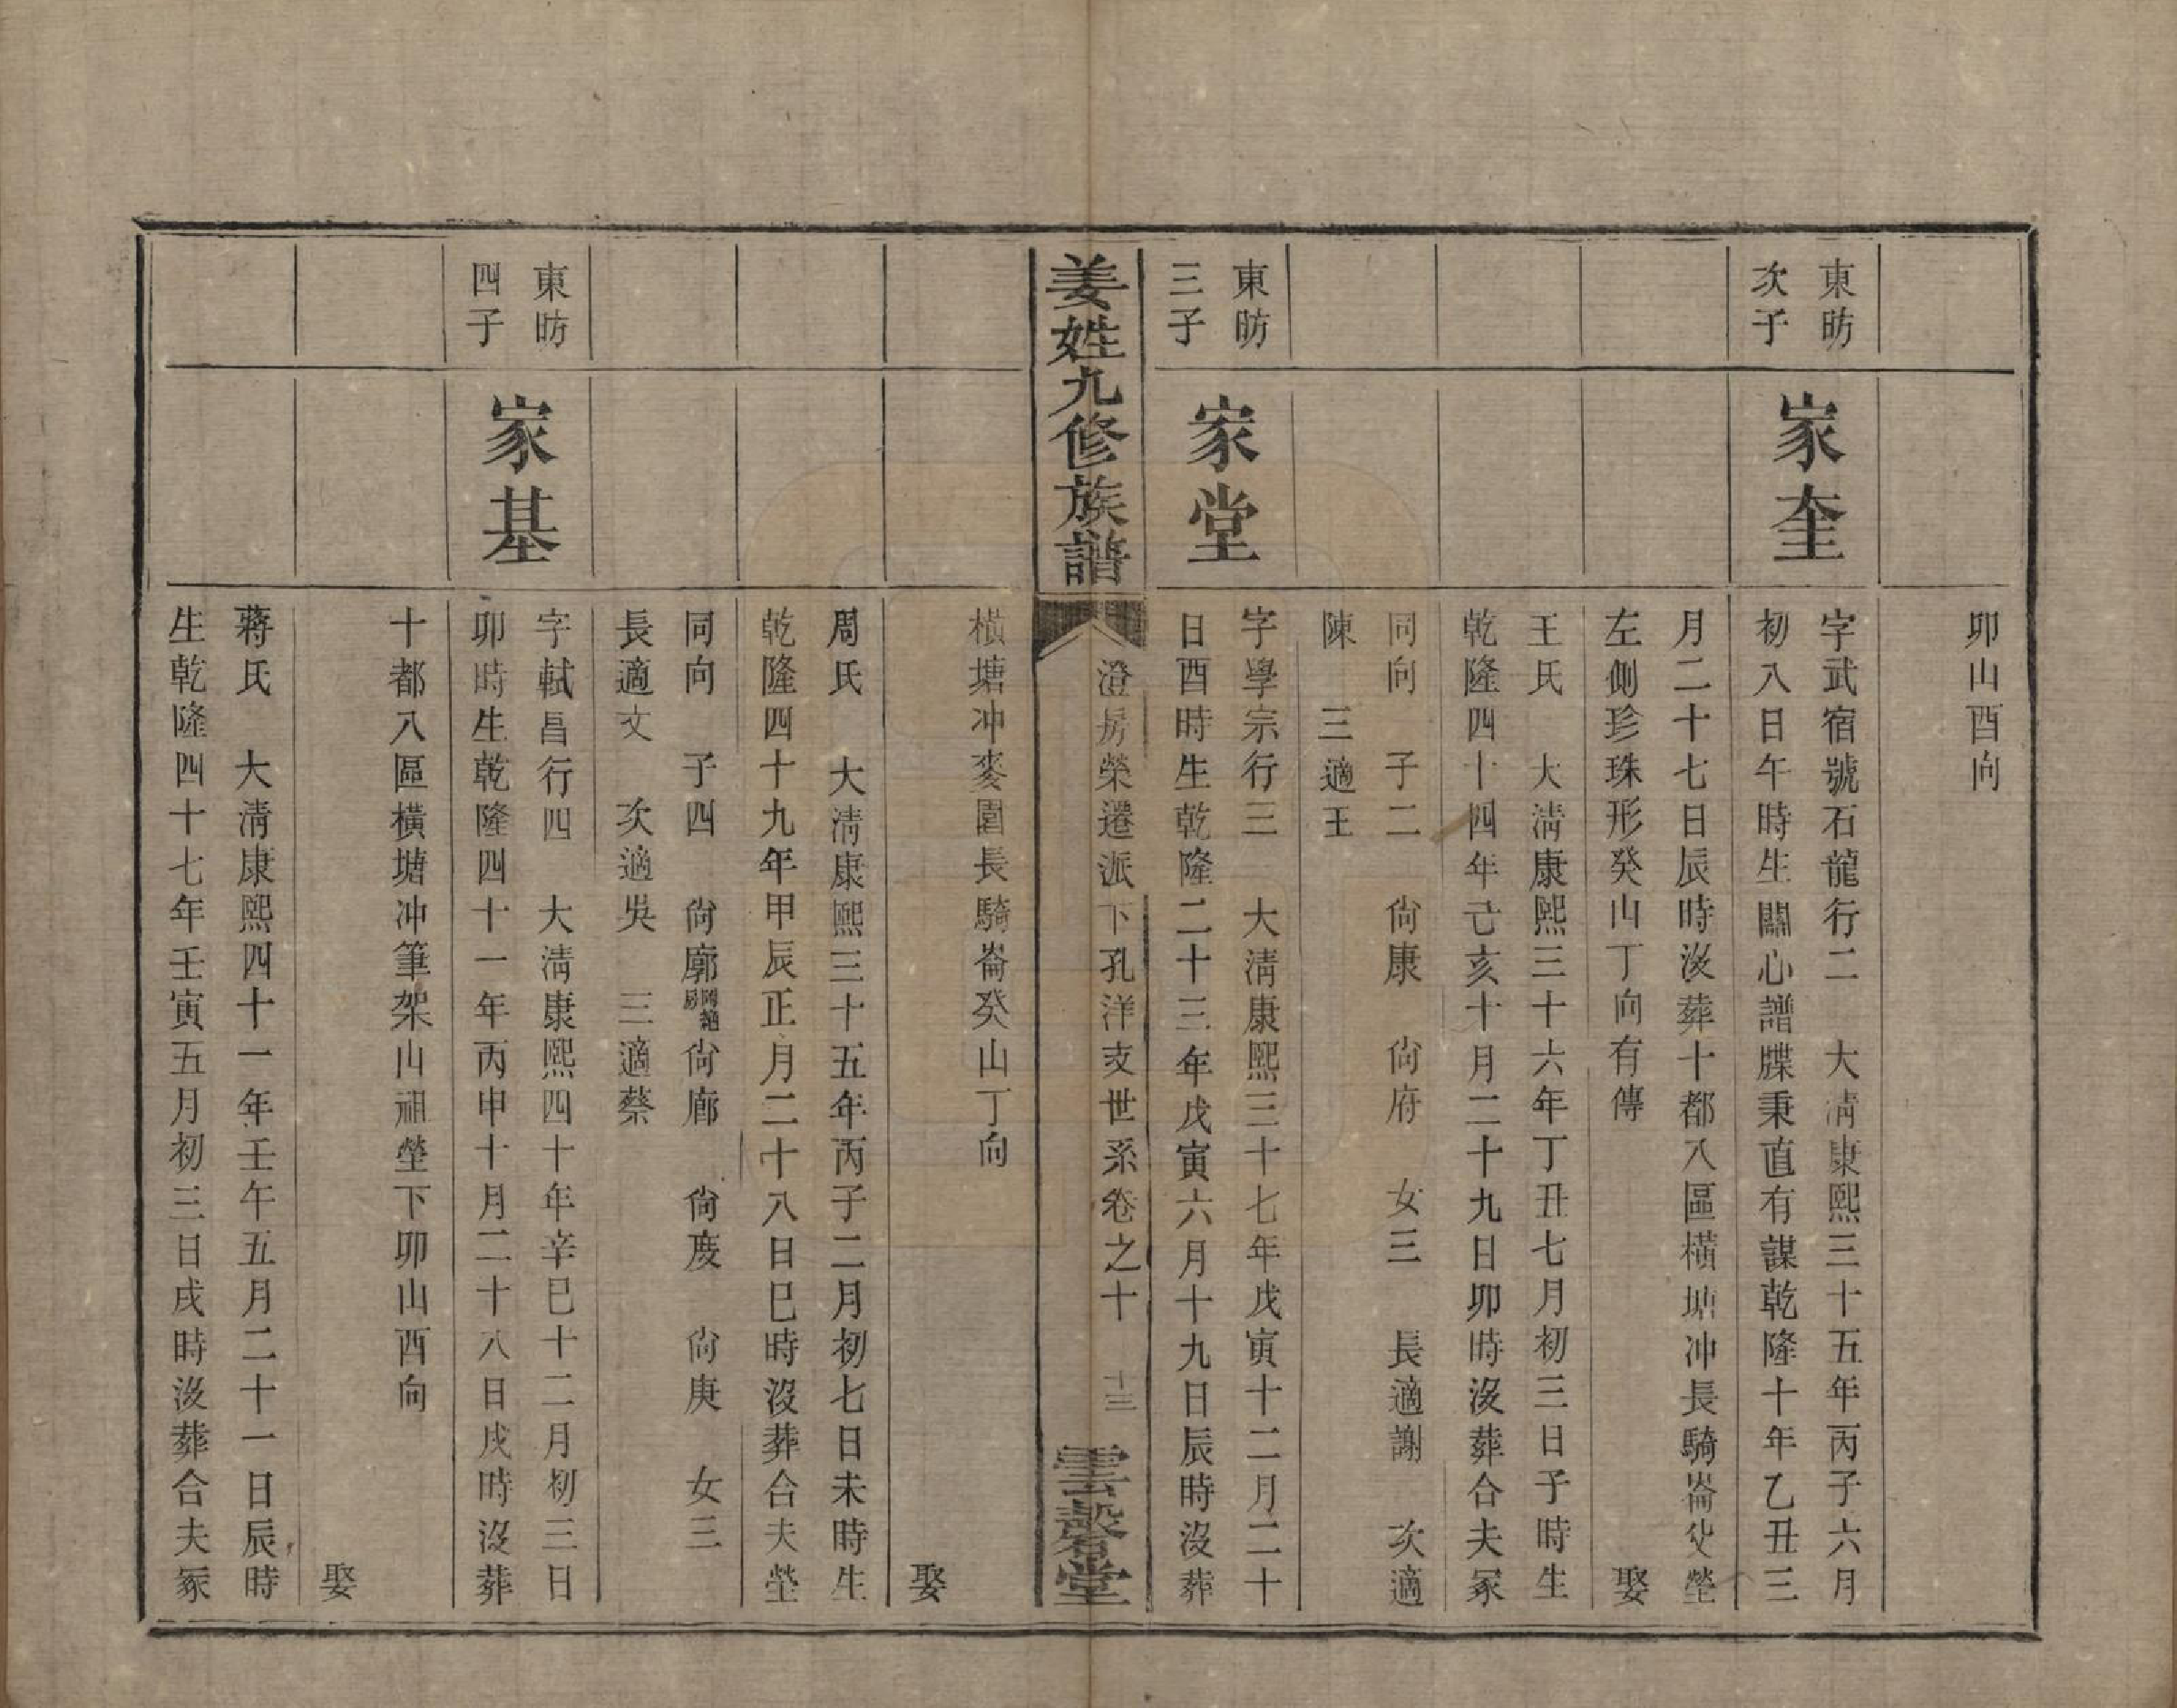 卯山酉向
東昉
次子
家奎
字武宿號石龍行二　大清康熙三十五年丙子六月
初八日午時生關心譜牒秉直有謀乾隆十年乙丑三
月二十七日辰時沒葬十都八區橫塘冲長騎崙父塋
左側珍珠形癸山丁向有傳　娶
王氏　大清康熙三十六年丁丑七月初三日子時生
乾隆四十四年己亥十月二十九日卯時沒葬合夫冢
同向　子二　尙康　尙府　女三　長適謝　次適
陳　三適王
東昉
三子
家堂
字學宗行三　大清康熙三十七年戊寅十二月二十
日酉時生乾隆二十三年戊寅六月十九日辰時沒葬
姜姓九修族譜
澄房榮遷派下孔洋支世系卷之十　十三
雲磬堂
橫塘冲麥園長騎崙癸山丁向
娶
周氏　大清康熙三十五年丙子二月初七日未時生
乾隆四十九年甲辰正月二十八日巳時沒葬合夫塋
同向　子四　尙廓尙廊　尙度　尙庚　女三
長適文　次適吳　三適蔡
東昉
四子
家基
字軾昌行四　大清康熙四十年辛巳十二月初三日
卯時生乾隆四十一年丙申十月二十八日戌時沒葬
十都八區橫塘冲筆架山祖塋下卯山酉向
娶
蔣氏　大清康熙四十一年壬午五月二十一日辰時
生乾隆四十七年壬寅五月初三日戌時沒葬合夫冢